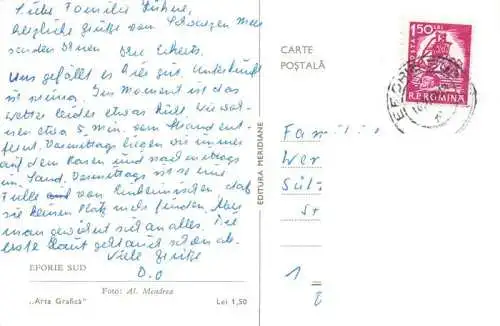 Liebe Familie Kühne,
Herzliche Grüße vom Schwarzen Meer
senden Ihnen Ihre Eckerts.
Uns gefällt es hier gut. Unterkunft
ist prima. Im Moment ist das
Wetter leider etwas kühl. Wir woh-
nen etwa 5 min. vom Strand ent-
fernt. Vormittags liegen wir immer
auf dem Rasen und nachmittags
im Sand. Vormittags ist so eine
Fülle von Einheimischen, daß
sie keinen Platz mehr finden. Aber
man gewöhnt sich an alles. Die
erste Haut geht auch schon ab.
Viele Grüße
D.O
EFORIE SUD
Foto: Al. Mendrea
„Arta Grafică” Lei 1,50
EDITURA MERIDIANE
CARTE
POȘTALĂ
1,50 LEI
POSTA
R.P.ROMINA
EFORIE
Famili
Wer
Sül
St
1